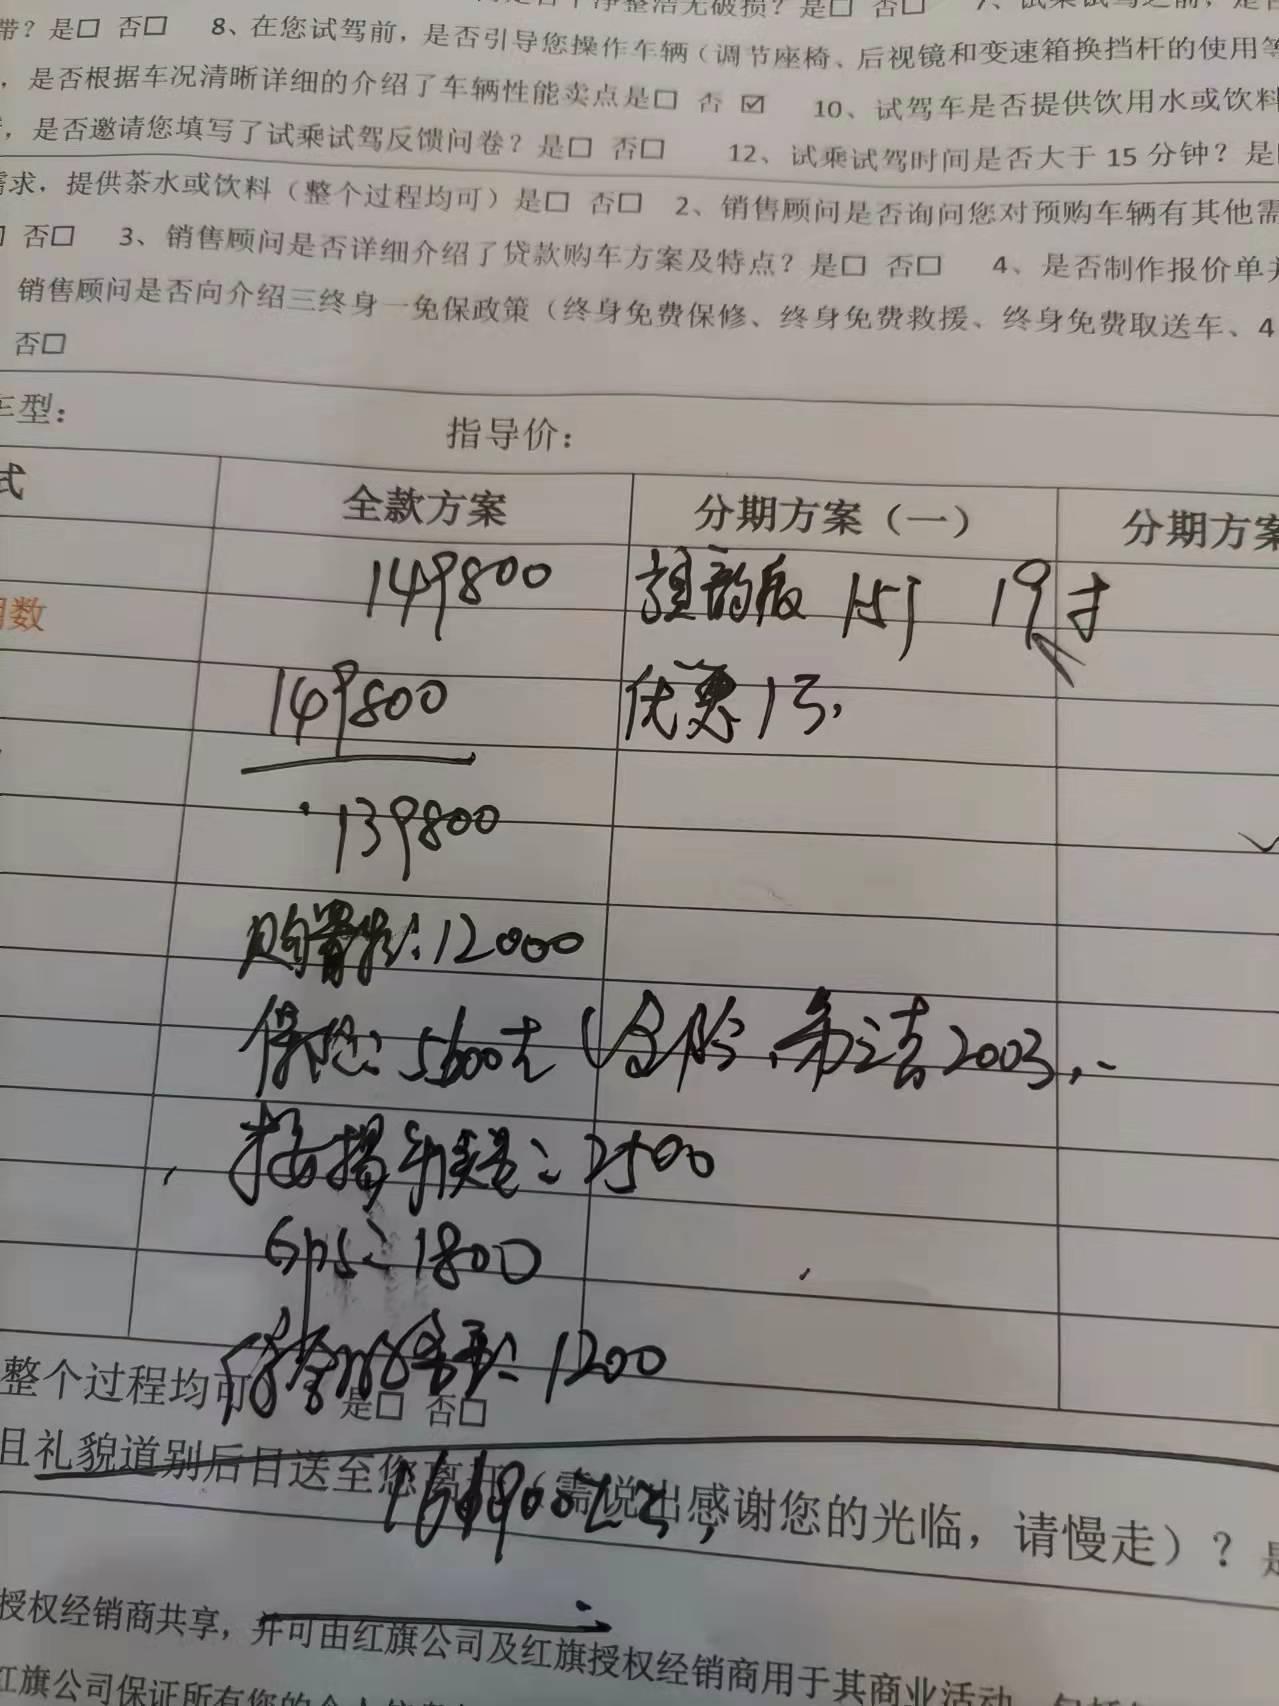 带？是□ 否□ 8、在您试驾前，是否引导您操作车辆（调节座椅、后视镜和变速箱换挡杆的使用等
，是否根据车况清晰详细的介绍了车辆性能卖点是□ 否 ☑ 10、试驾车是否提供饮用水或饮料
，是否邀请您填写了试乘试驾反馈问卷？是□ 否□ 12、试乘试驾时间是否大于 15 分钟？是
需求，提供茶水或饮料（整个过程均可）是□ 否□ 2、销售顾问是否询问您对预购车辆有其他需
否□ 3、销售顾问是否详细介绍了贷款购车方案及特点？是□ 否□ 4、是否制作报价单并
销售顾问是否向介绍三终身一免保政策（终身免费保修、终身免费救援、终身免费取送车、4
否□
车型： 指导价：
式 全款方案 分期方案（一） 分期方案
149800 韵版 15T 19寸
期数
149800 优惠1万,
139800
购置税：12000
保险：5600元（全险、第三者200万,
按揭手续费：2500
GPS：1800
1200
整个过程均可 是□ 否□
且礼貌道别后目送至您离开（需说出感谢您的光临，请慢走）？是
授权经销商共享，并可由红旗公司及红旗授权经销商用于其商业活动
红旗公司保证所有您的个人信息